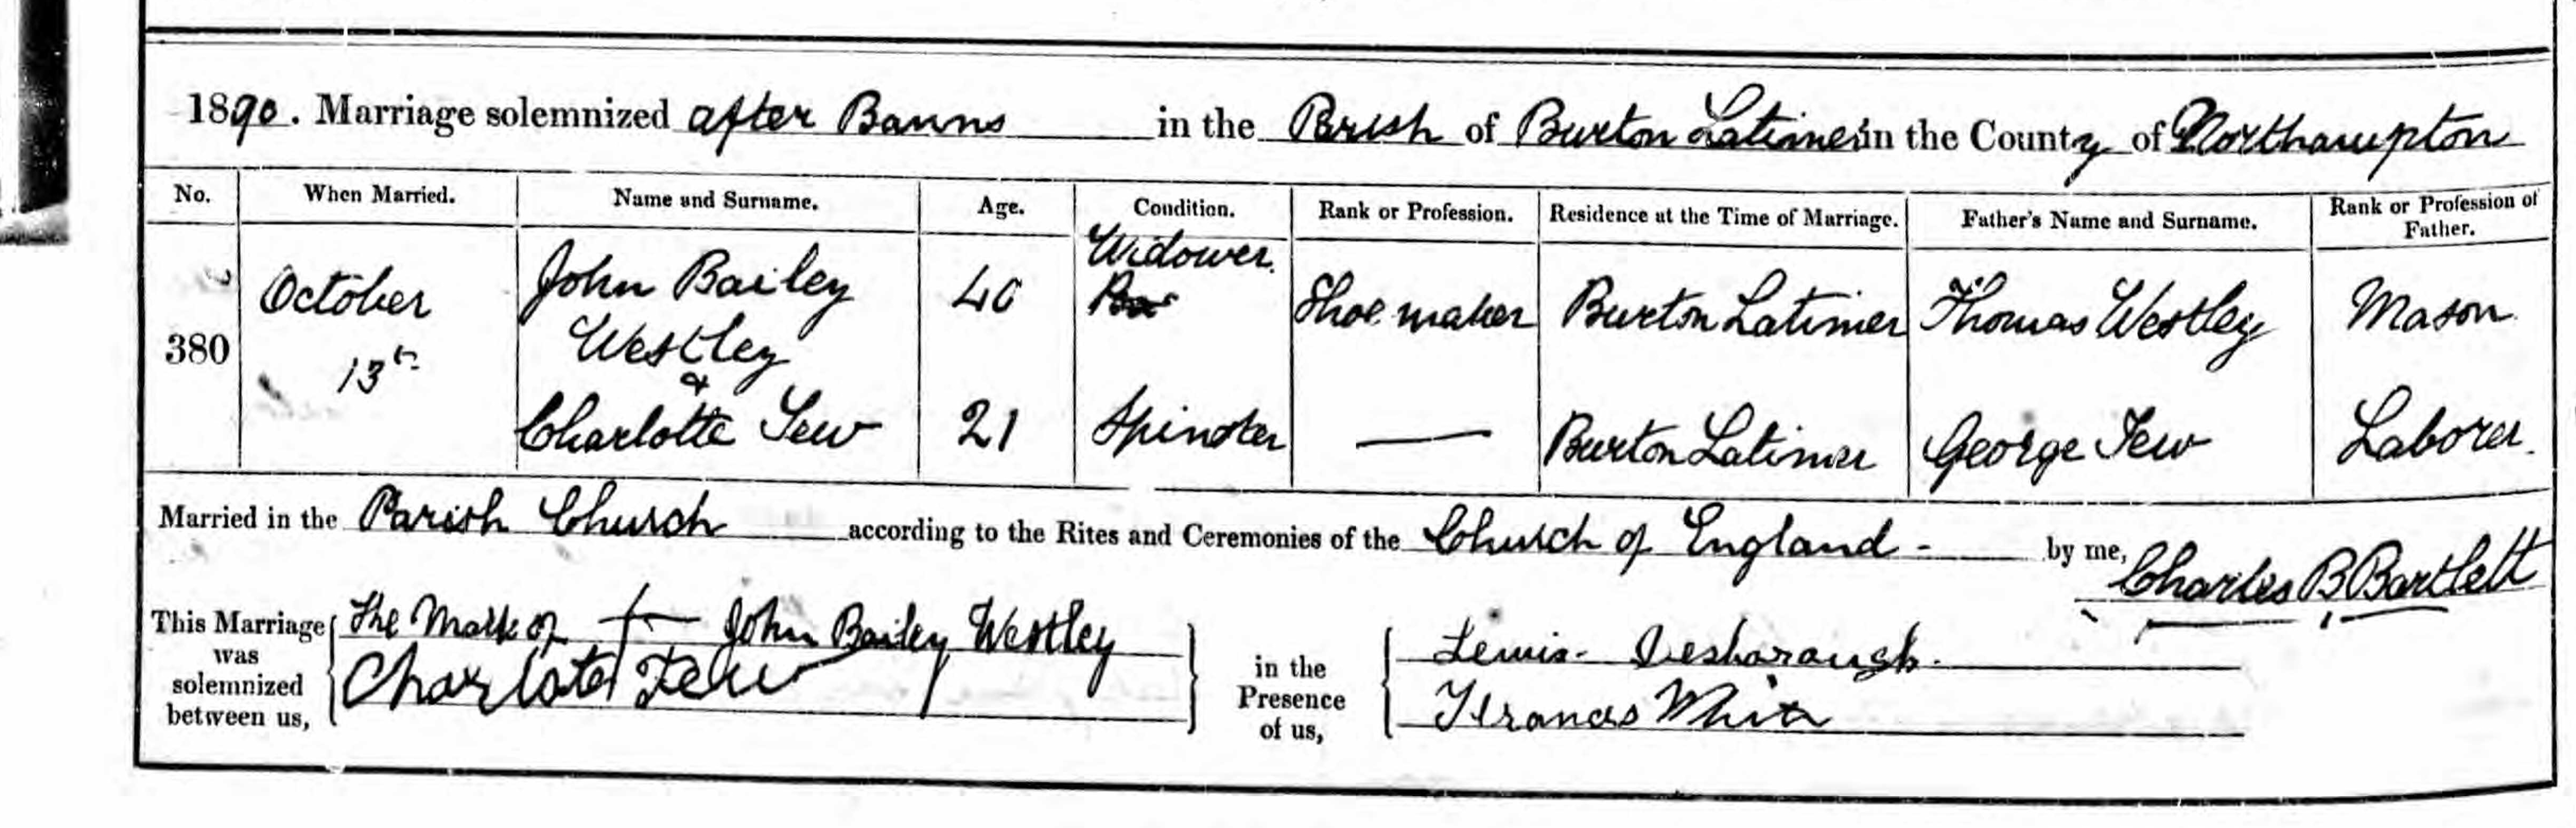 1890. Marriage solemnized after Banns in the Parish of Burton Latimer in the County of Northampton
No. When Married. Name and Surname. Age. Condition. Rank or Profession. Residence at the Time of Marriage. Father's Name and Surname. Rank or Profession of Father.
Widower.
October John Bailey 40 Bac Shoe maker Burton Latimer Thomas Westley Mason
380 13th Westley
&
Charlotte Tew 21 Spinster — Burton Latimer George Tew Laborer.
Married in the Parish Church according to the Rites and Ceremonies of the Church of England - by me, Charles B Bartlett
This Marriage was solemnized between us, The Mark of + John Bailey Westley
Charlotte Tew
in the Presence of us, Lewis Desborough.
Francis